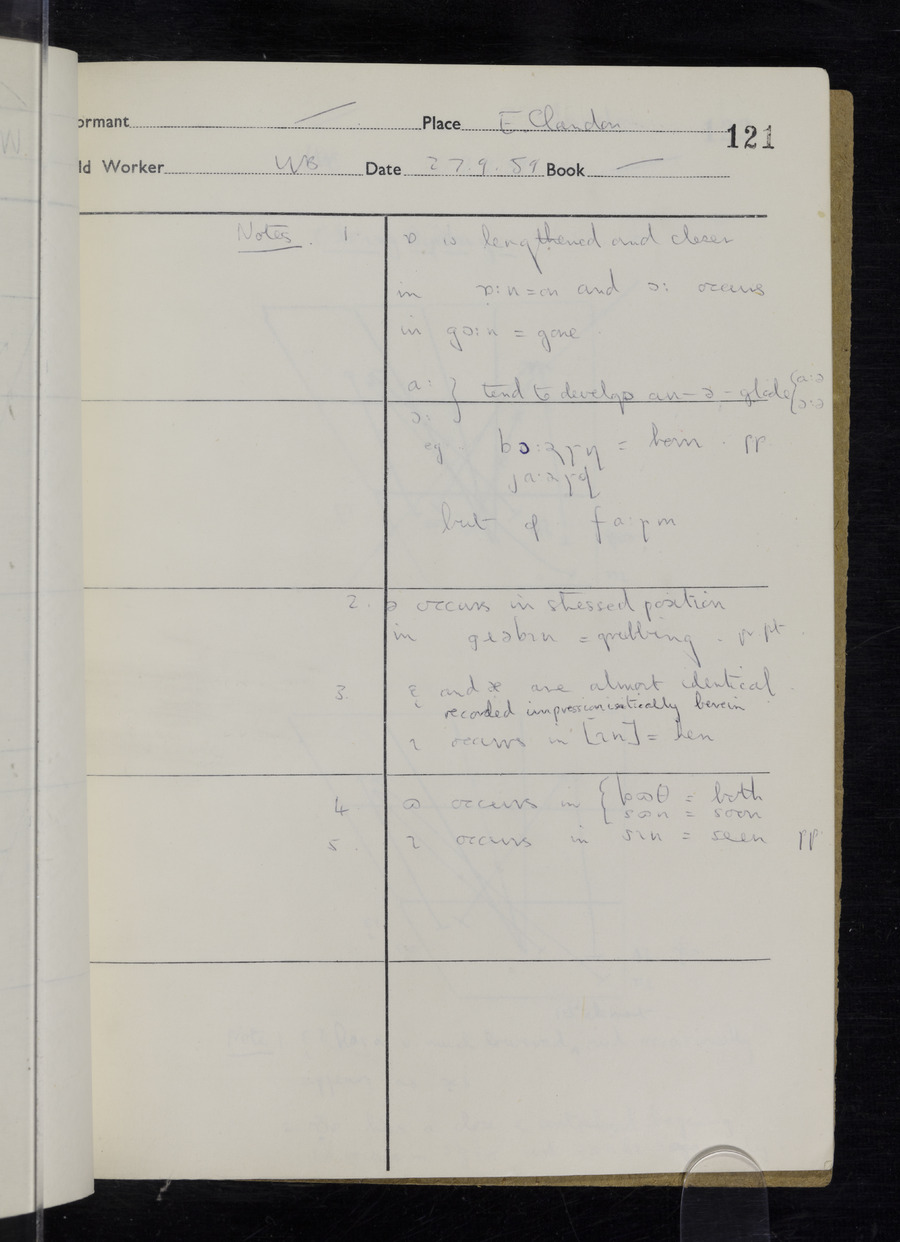 ormant Place E. Clandon
121
ld Worker WB Date 27.9.59 Book
Notes. 1 ɒ is lengthened and closer
in ɒ:n = on and ɔ: occurs
in gɔ:n = gone
a: } tend to develop an -ə- glide { a:ə
ɔ: ɔ:ə
eg. = born. pp
but cf fa:ɻm
2. ə occurs in stressed position
in = grubbing. pr. pt.
3 ɛ and æ are almost identical
recorded impressionistically herein
ɪ occurs in [ɪn] = hen
4. ɷ occurs in { bɷθ = both
sɷn = soon
5. ɪ occurs in sɪn = seen pp